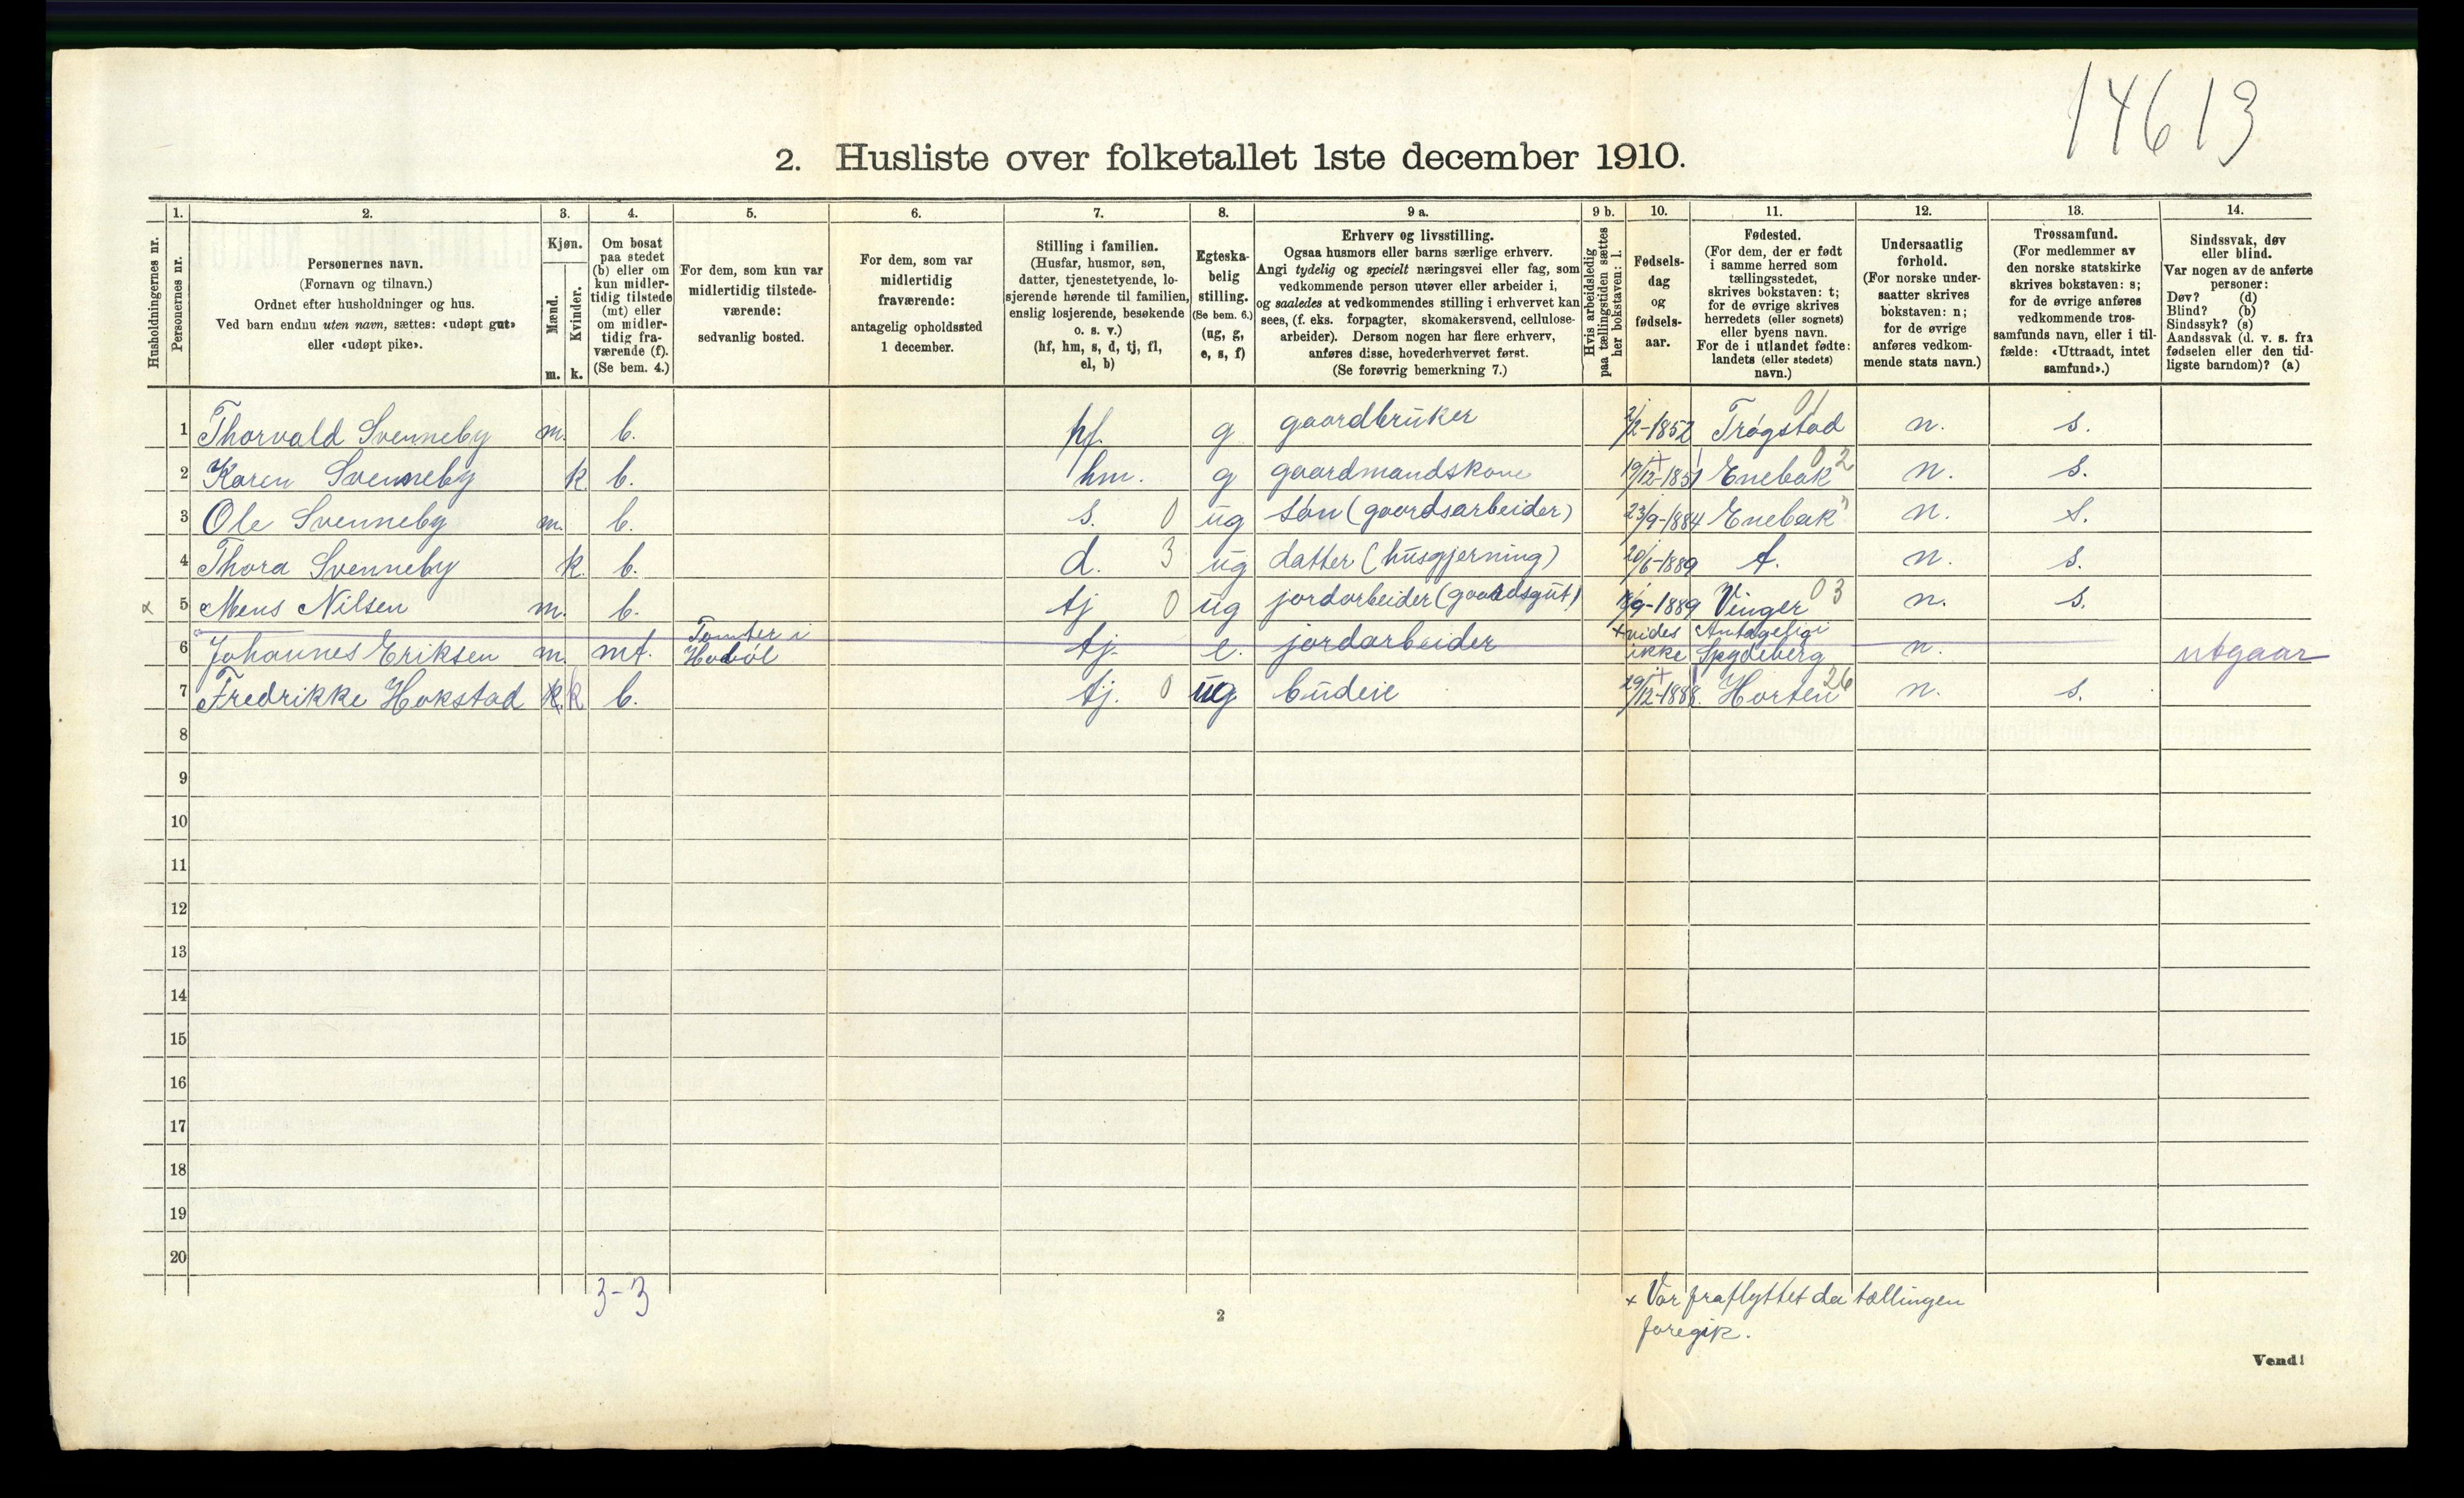 14613
2. Husliste over folketallet 1ste december 1910.
Husholdningernes nr.
1. Personernes nr.
2. Personernes navn.
(Fornavn og tilnavn.)
Ordnet efter husholdninger og hus.
Ved barn endnu uten navn, sættes: «udøpt gut»
eller «udøpt pike».
3. Kjøn.
Mænd. m.
Kvinder. k.
4. Om bosat
paa stedet
(b) eller om
kun midler-
tidig tilstede
(mt) eller
om midler-
tidig fra-
værende (f).
(Se bem. 4.)
5. For dem, som kun var
midlertidig tilstede-
værende:
sedvanlig bosted.
6. For dem, som var
midlertidig
fraværende:
antagelig opholdssted
1 december.
7. Stilling i familien.
(Husfar, husmor, søn,
datter, tjenestetyende, lo-
sjerende hørende til familien,
enslig losjerende, besøkende
o. s. v.)
(hf, hm, s, d, tj, fl,
el, b)
8. Egteska-
belig
stilling.
(Se bem. 6.)
(ug, g,
e, s, f)
9 a. Erhverv og livsstilling.
Ogsaa husmors eller barns særlige erhverv.
Angi tydelig og specielt næringsvei eller fag, som
vedkommende person utøver eller arbeider i,
og saaledes at vedkommendes stilling i erhvervet kan
sees, (f. eks. forpagter, skomakersvend, cellulose-
arbeider). Dersom nogen har flere erhverv,
anføres disse, hovederhvervet først.
(Se forøvrig bemerkning 7.)
9 b. Hvis arbeidsledig
paa tællingstiden sættes
her bokstaven: l.
10. Fødsels-
dag
og
fødsels-
aar.
11. Fødested.
(For dem, der er født
i samme herred som
tællingsstedet,
skrives bokstaven: t;
for de øvrige skrives
herredets (eller sognets)
eller byens navn.
For de i utlandet fødte:
landets (eller stedets)
navn.)
12. Undersaatlig
forhold.
(For norske under-
saatter skrives
bokstaven: n;
for de øvrige
anføres vedkom-
mende stats navn.)
13. Trossamfund.
(For medlemmer av
den norske statskirke
skrives bokstaven: s;
for de øvrige anføres
vedkommende tros-
samfunds navn, eller i til-
fælde: «Uttraadt, intet
samfund».)
14. Sindssvak, døv
eller blind.
Var nogen av de anførte
personer:
Døv? (d)
Blind? (b)
Sindssyk? (s)
Aandssvak (d. v. s. fra
fødselen eller den tid-
ligste barndom)? (a)
1 Thorvald Svenneby m. b. hf. g gaardbruker 2/2-1852 Trøgstad 01 n. s.
2 Karen Svenneby k b. hm. g gaardmandskone 19/12-1851 Enebak 02 n. s.
3 Ole Svenneby m. b. s. 0 ug søn (gaardsarbeider) 23/9-1884 Enebak " n. s.
4 Thora Svenneby k. b. d. 3 ug datter (husgjerning) 20/6-1889 t. n. s.
x 5 Mens Nilsen m. b. tj 0 ug jordarbeider (gaardsgut) 18/9-1889 Vinger 03 n. s.
6 Johannes Eriksen m. mt. Tomter i Hobøl tj. e. jordarbeider + vides ikke Antagelig i Spydeberg n. utgaar
7 Fredrikke Hokstad k. k b. tj. 0 ug budeie 29/12-1888. Horten 26 n. s.
8
9
10
11
12
13
14
15
16
17
18
19
20
3-3
2
x Var fraflyttet da tællingen
foregik.
Vend!